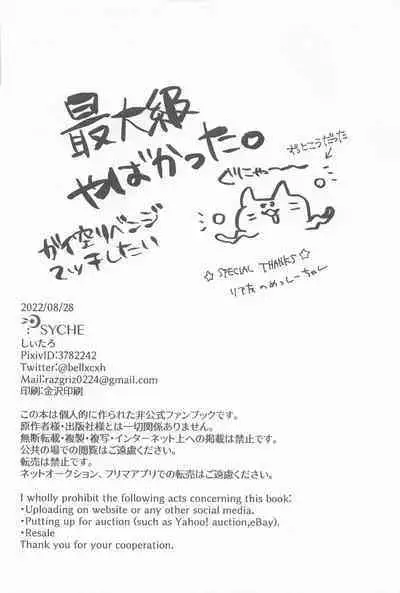 最大級
やばかった。
ずっとこうだった
ぐにゃ〜〜
ガイ空リベンジ
マッチしたい
☆SPECIAL THANKS☆
2022/08/28
PSYCHE
しぃたろ
PixivID:3782242
Twitter:@bellxcxh
Mail:razgriz0224@gmail.com
印刷:金沢印刷
この本は個人的に作られた非公式ファンブックです。
原作者様・出版社様とは一切関係ありません。
無断転載・複製・複写・インターネット上への掲載は禁止です。
公共の場での閲覧はご遠慮ください。
転売は禁止です。
ネットオークション、フリマアプリでの転売はご遠慮ください。
I wholly prohibit the following acts concerning this book:
・Uploading on website or any other social media.
・Putting up for auction (such as Yahoo! auction,eBay).
・Resale
Thank you for your cooperation.